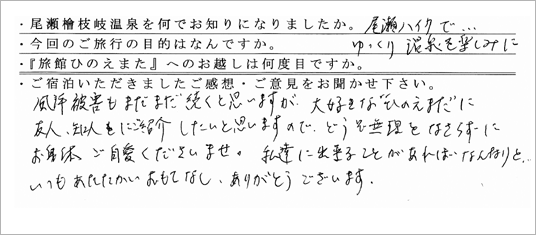 ・尾瀬檜枝岐温泉を何でお知りになりましたか。 尾瀬ハイクで…
・今回のご旅行の目的はなんですか。 ゆっくり 温泉を楽しみに
・『旅館ひのえまた』へのお越しは何度目ですか。
・ご宿泊いただきましたご感想・ご意見をお聞かせ下さい。
風評被害もまだまだ続くと思いますが、大好きな"ひのえまた"に
友人、知人もご紹介したいと思いますので、どうぞ無理をなさらずに
お身体ご自愛くださいませ。私達に出来ることがあればなんなりと…
いつもあたたかいおもてなし、ありがとうございます。